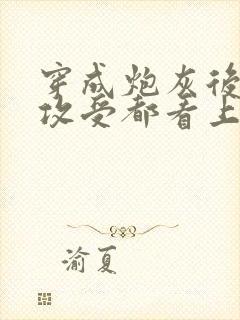 穿成炮灰後
攻受都看上
渝夏